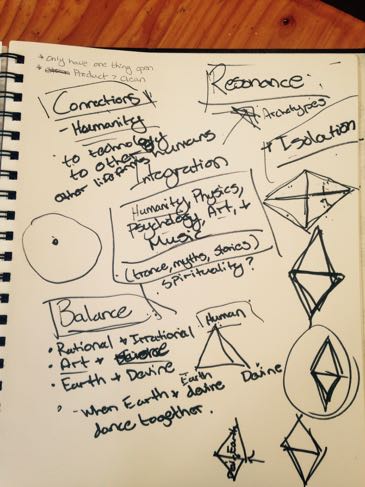 * Only have one thing open
* Product ? clean
Connections
- Humanity
to technology
to other humans
other lifeforms
Resonance
Archetypes
+ Isolation
Integration
Humanity, Physics,
Psychology, Art, +
Music
(trance, myths, stories)
spirituality?
Balance
• Rational + Irrational
• Art +
• Earth + Devine
- when Earth + devine
dance together.
Human
Earth
Devine
Earth